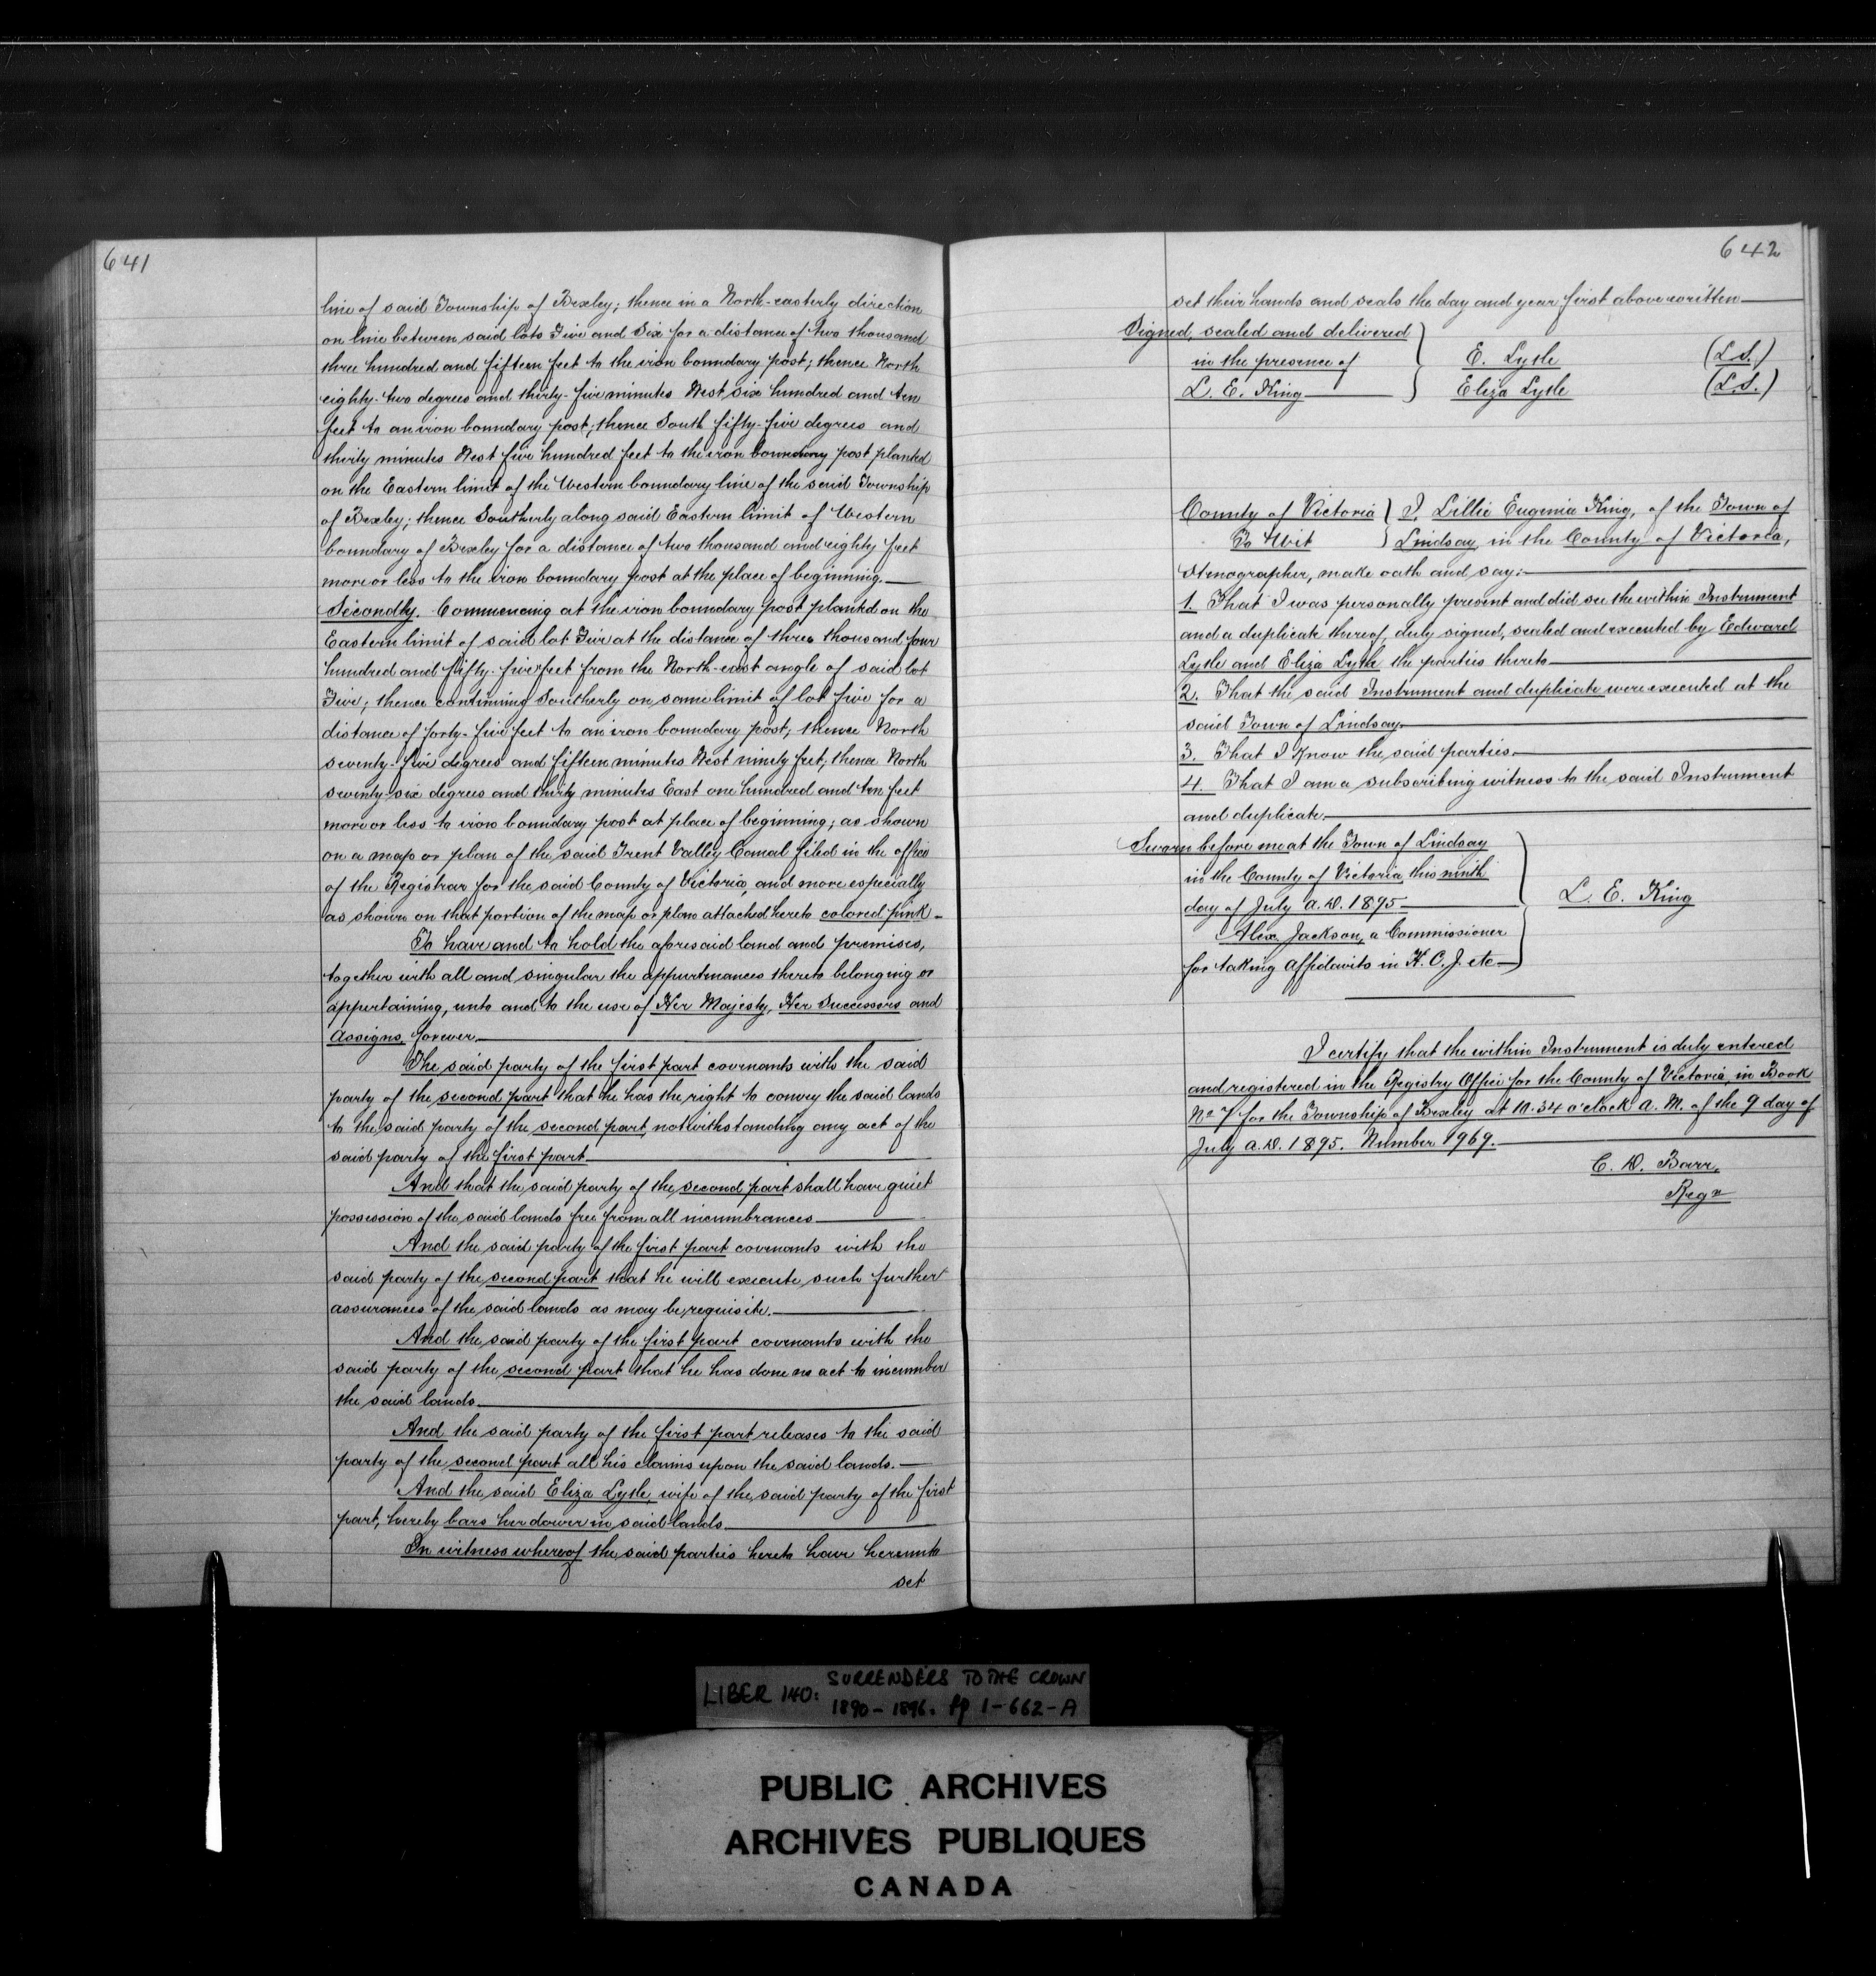 641
line of said Township of Bexley; thence in a North-easterly direction
on line between said lots Five and Six for a distance of two thousand
three hundred and fifteen feet to the iron boundary post; thence North
eighty-two degrees and thirty-five minutes West six hundred and ten
feet to an iron boundary post; thence South fifty-five degrees and
thirty minutes West five hundred feet to the iron boundary post planted
on the Eastern limit of the Western boundary line of the said Township
of Bexley; thence Southerly along said Eastern limit of Western
boundary of Bexley for a distance of two thousand and eighty feet
more or less to the iron boundary post at the place of beginning.
Secondly. Commencing at the iron boundary post planted on the
Eastern limit of said lot Five at the distance of three thousand four
hundred and fifty-five feet from the North-east angle of said lot
Five; thence continuing Southerly on same limit of lot five for a
distance of forty-five feet to an iron boundary post; thence North
seventy-five degrees and fifteen minutes West ninety feet; thence North
seventy-six degrees and thirty minutes East one hundred and ten feet
more or less to iron boundary post at place of beginning; as shown
on a map or plan of the said Trent Valley Canal filed in the office
of the Registrar for the said County of Victoria, and more especially
as shown on that portion of the map or plan attached hereto colored pink-
To have and to hold the aforesaid land and premises,
together with all and singular the appurtenances thereto belonging or
appertaining, unto and to the use of Her Majesty, Her Successors and
Assigns, forever.
The said party of the first part covenants with the said
party of the second part that he has the right to convey the said lands
to the said party of the second part, notwithstanding any act of the
said party of the first part.
And that the said party of the second part shall have quiet
possession of the said lands free from all incumbrances
And the said party of the first part covenants with the
said party of the second part that he will execute such further
assurances of the said lands as may be requisite.
And the said party of the first part covenants with the
said party of the second part that he has done no act to incumber
the said lands
And the said party of the first part releases to the said
party of the second part all his claims upon the said lands.
And the said Eliza Lytle, wife of the said party of the first
part, hereby bars her dower in said lands
In witness whereof the said parties hereto have hereunto
set
642
set their hands and seals the day and year first above written
Signed, sealed and delivered
in the presence of E. Lytle (L.S.)
L. E. King Eliza Lytle (L.S.)
County of Victoria } I, Lillie Eugenia King, of the Town of
To Wit } Lindsay, in the County of Victoria,
Stenographer, make oath and say:
1. That I was personally present and did see the within Instrument
and a duplicate thereof, duly signed, sealed and executed by Edward
Lytle and Eliza Lytle the parties thereto
2. That the said Instrument and duplicate were executed at the
said Town of Lindsay.
3. That I Know the said parties.
4. That I am a subscribing witness to the said Instrument
and duplicate.
Sworn before me at the Town of Lindsay
in the County of Victoria, this ninth
day of July A.D. 1895 L. E. King
Alex. Jackson, a Commissioner
for taking Affidavits in H. C. J. etc
I certify that the within Instrument is duly entered
and registered in the Registry Office for the County of Victoria, in Book
No 7 for the Township of Bexley at 10.34 o'clock A. M. of the 9 day of
July A.D. 1895. Number 1969.
C. D. Barr,
Regr
LIBER 140: SURRENDERS TO THE CROWN
1890-1896. pp 1-662-A
PUBLIC ARCHIVES
ARCHIVES PUBLIQUES
CANADA